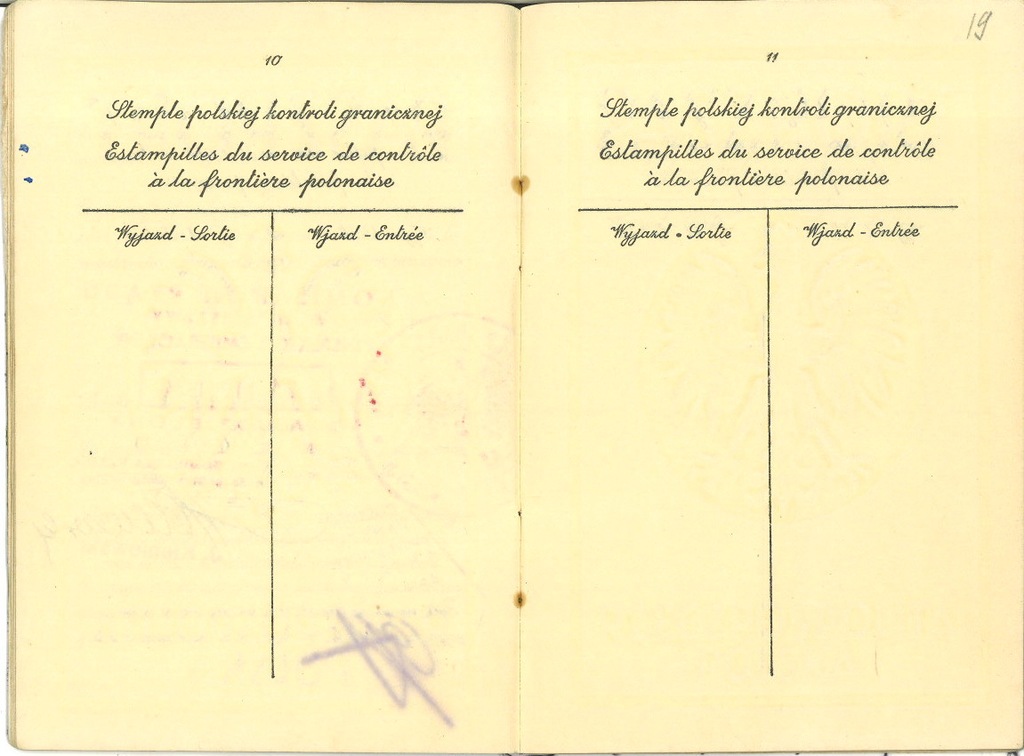 10
Stemple polskiej kontroli granicznej
Estampilles du service de contrôle
à la frontière polonaise
Wyjazd - Sortie
Wjazd - Entrée
19
11
Stemple polskiej kontroli granicznej
Estampilles du service de contrôle
à la frontière polonaise
Wyjazd - Sortie
Wjazd - Entrée